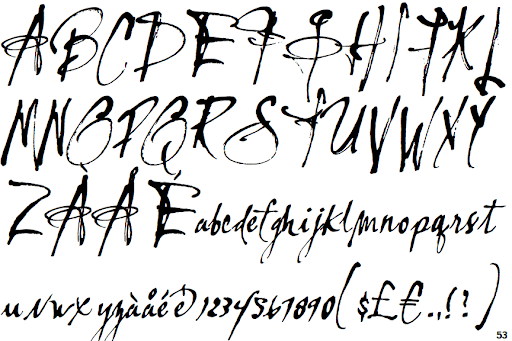 ABCDEFGHIJKL
MNOPQRSTUVWXY
ZÀÅÉabcdefghijklmnopqrst
uvwxyzàåéø1234567890($£€.,!?)
53